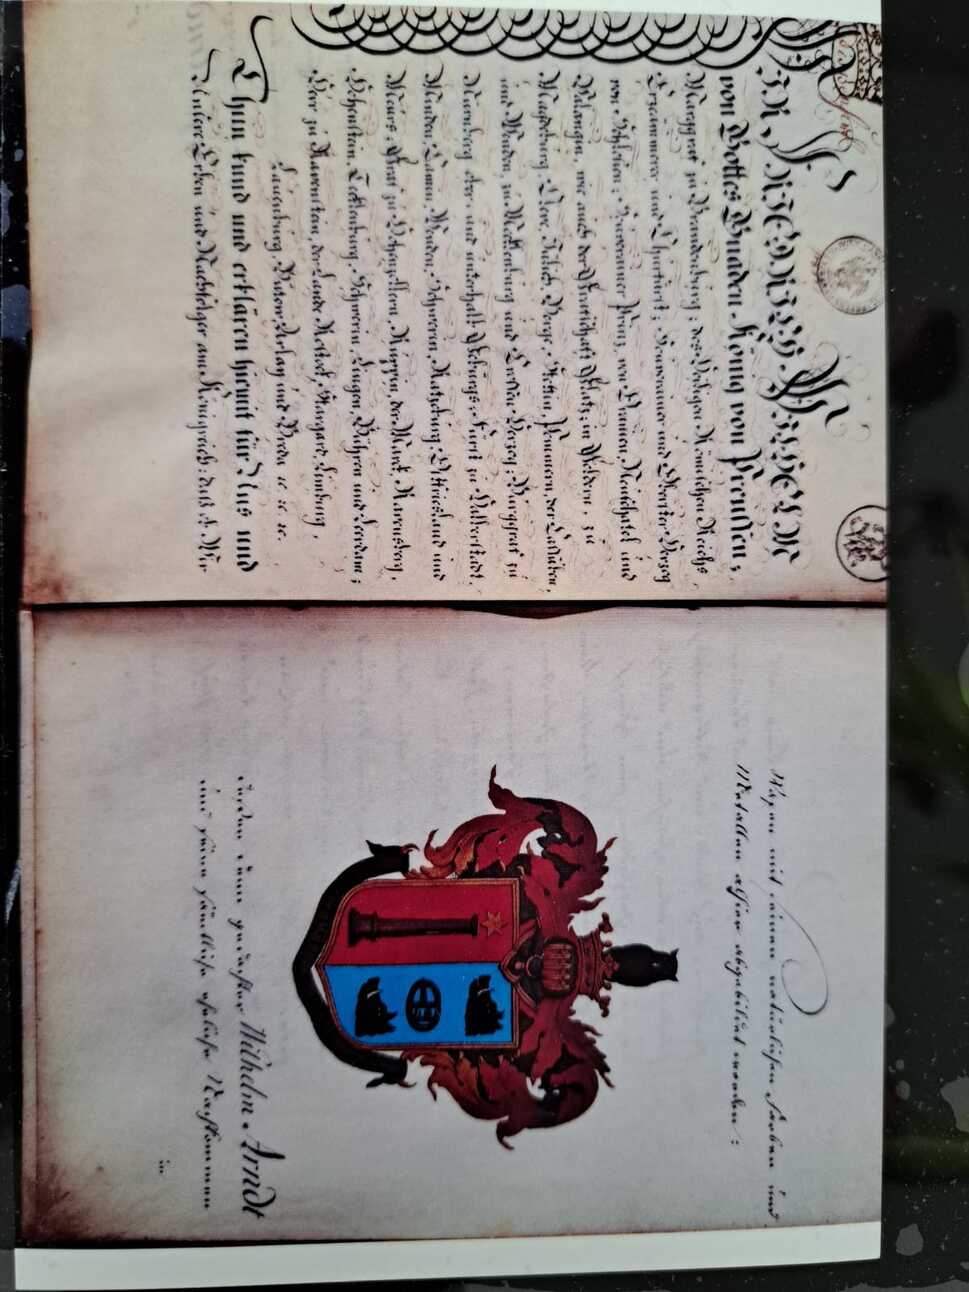 WIR, FRIEDRICH WILHELM
von Gottes Gnaden König von Preussen;
Marggraf zu Brandenburg; des Heiligen Römischen Reichs
Erzcämmerer und Churfürst; Souverainer und Oberster Herzog
von Schlesien; Souverainer Prinz von Oranien, Neufchatel und
Valangin, wie auch der Grafschaft Glatz; in Geldern, zu
Magdeburg, Cleve, Jülich, Berge, Stettin, Pommern, der Cassuben
und Wenden, zu Mecklenburg und Crossen Herzog; Burggraf zu
Nürnberg ober- und unterhalb Gebürgs; Fürst zu Halberstadt,
Minden, Camin, Wenden, Schwerin, Ratzeburg, Ostfriesland und
Meurs; Graf zu Hohenzollern, Ruppin, der Marck, Ravensberg,
Hohenstein, Tecklenburg, Schwerin, Lingen, Bühren und Leerdam;
Herr zu Ravenstein, der Lande Rostock, Stargard, Limburg,
Lauenburg, Bütow, Arlay und Breda ꝛc ꝛc ꝛc.
Thun kund und erklären hiermit für Uns und
Unsere Erben und Nachfolger am Königreich; daß Wir
Wapen mit seinen natürlichen Farben und
Metallen alhier abgebildet worden;
gedachter Wilhelm Arndt
und seine sämtliche eheliche Nachkommen
in